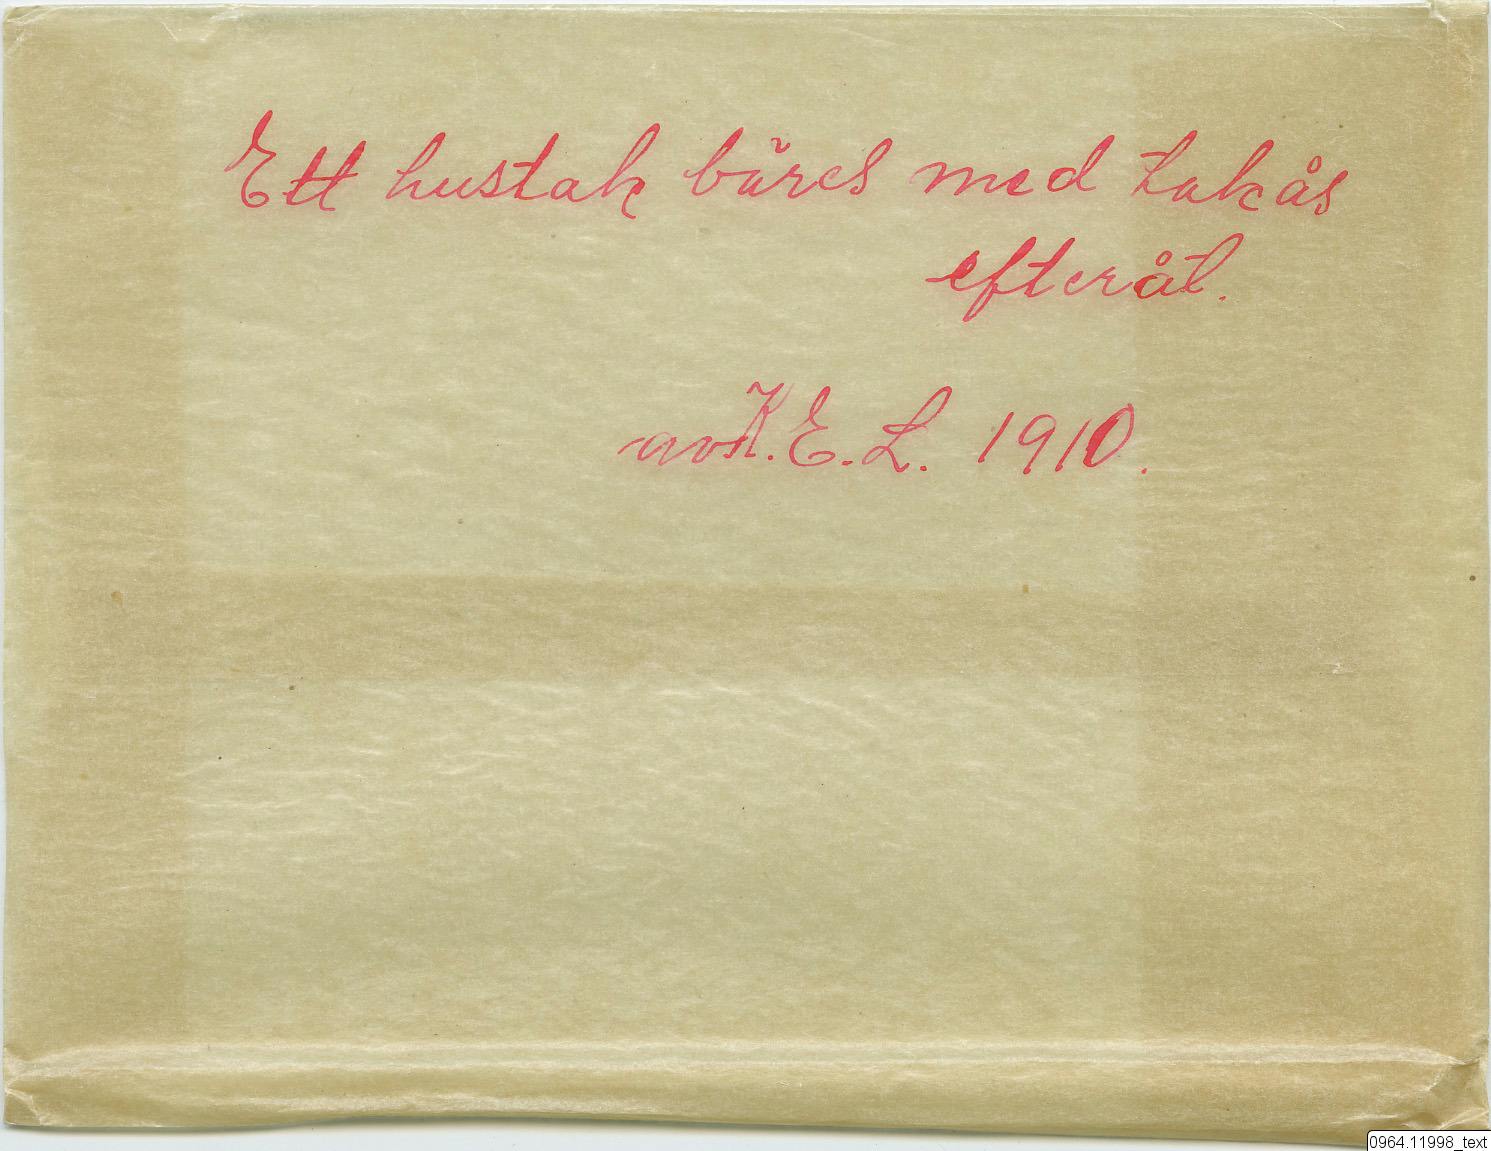 Ett hustak bäres med takås
efteråt.
av K.E.L. 1910.
0964.11998_text